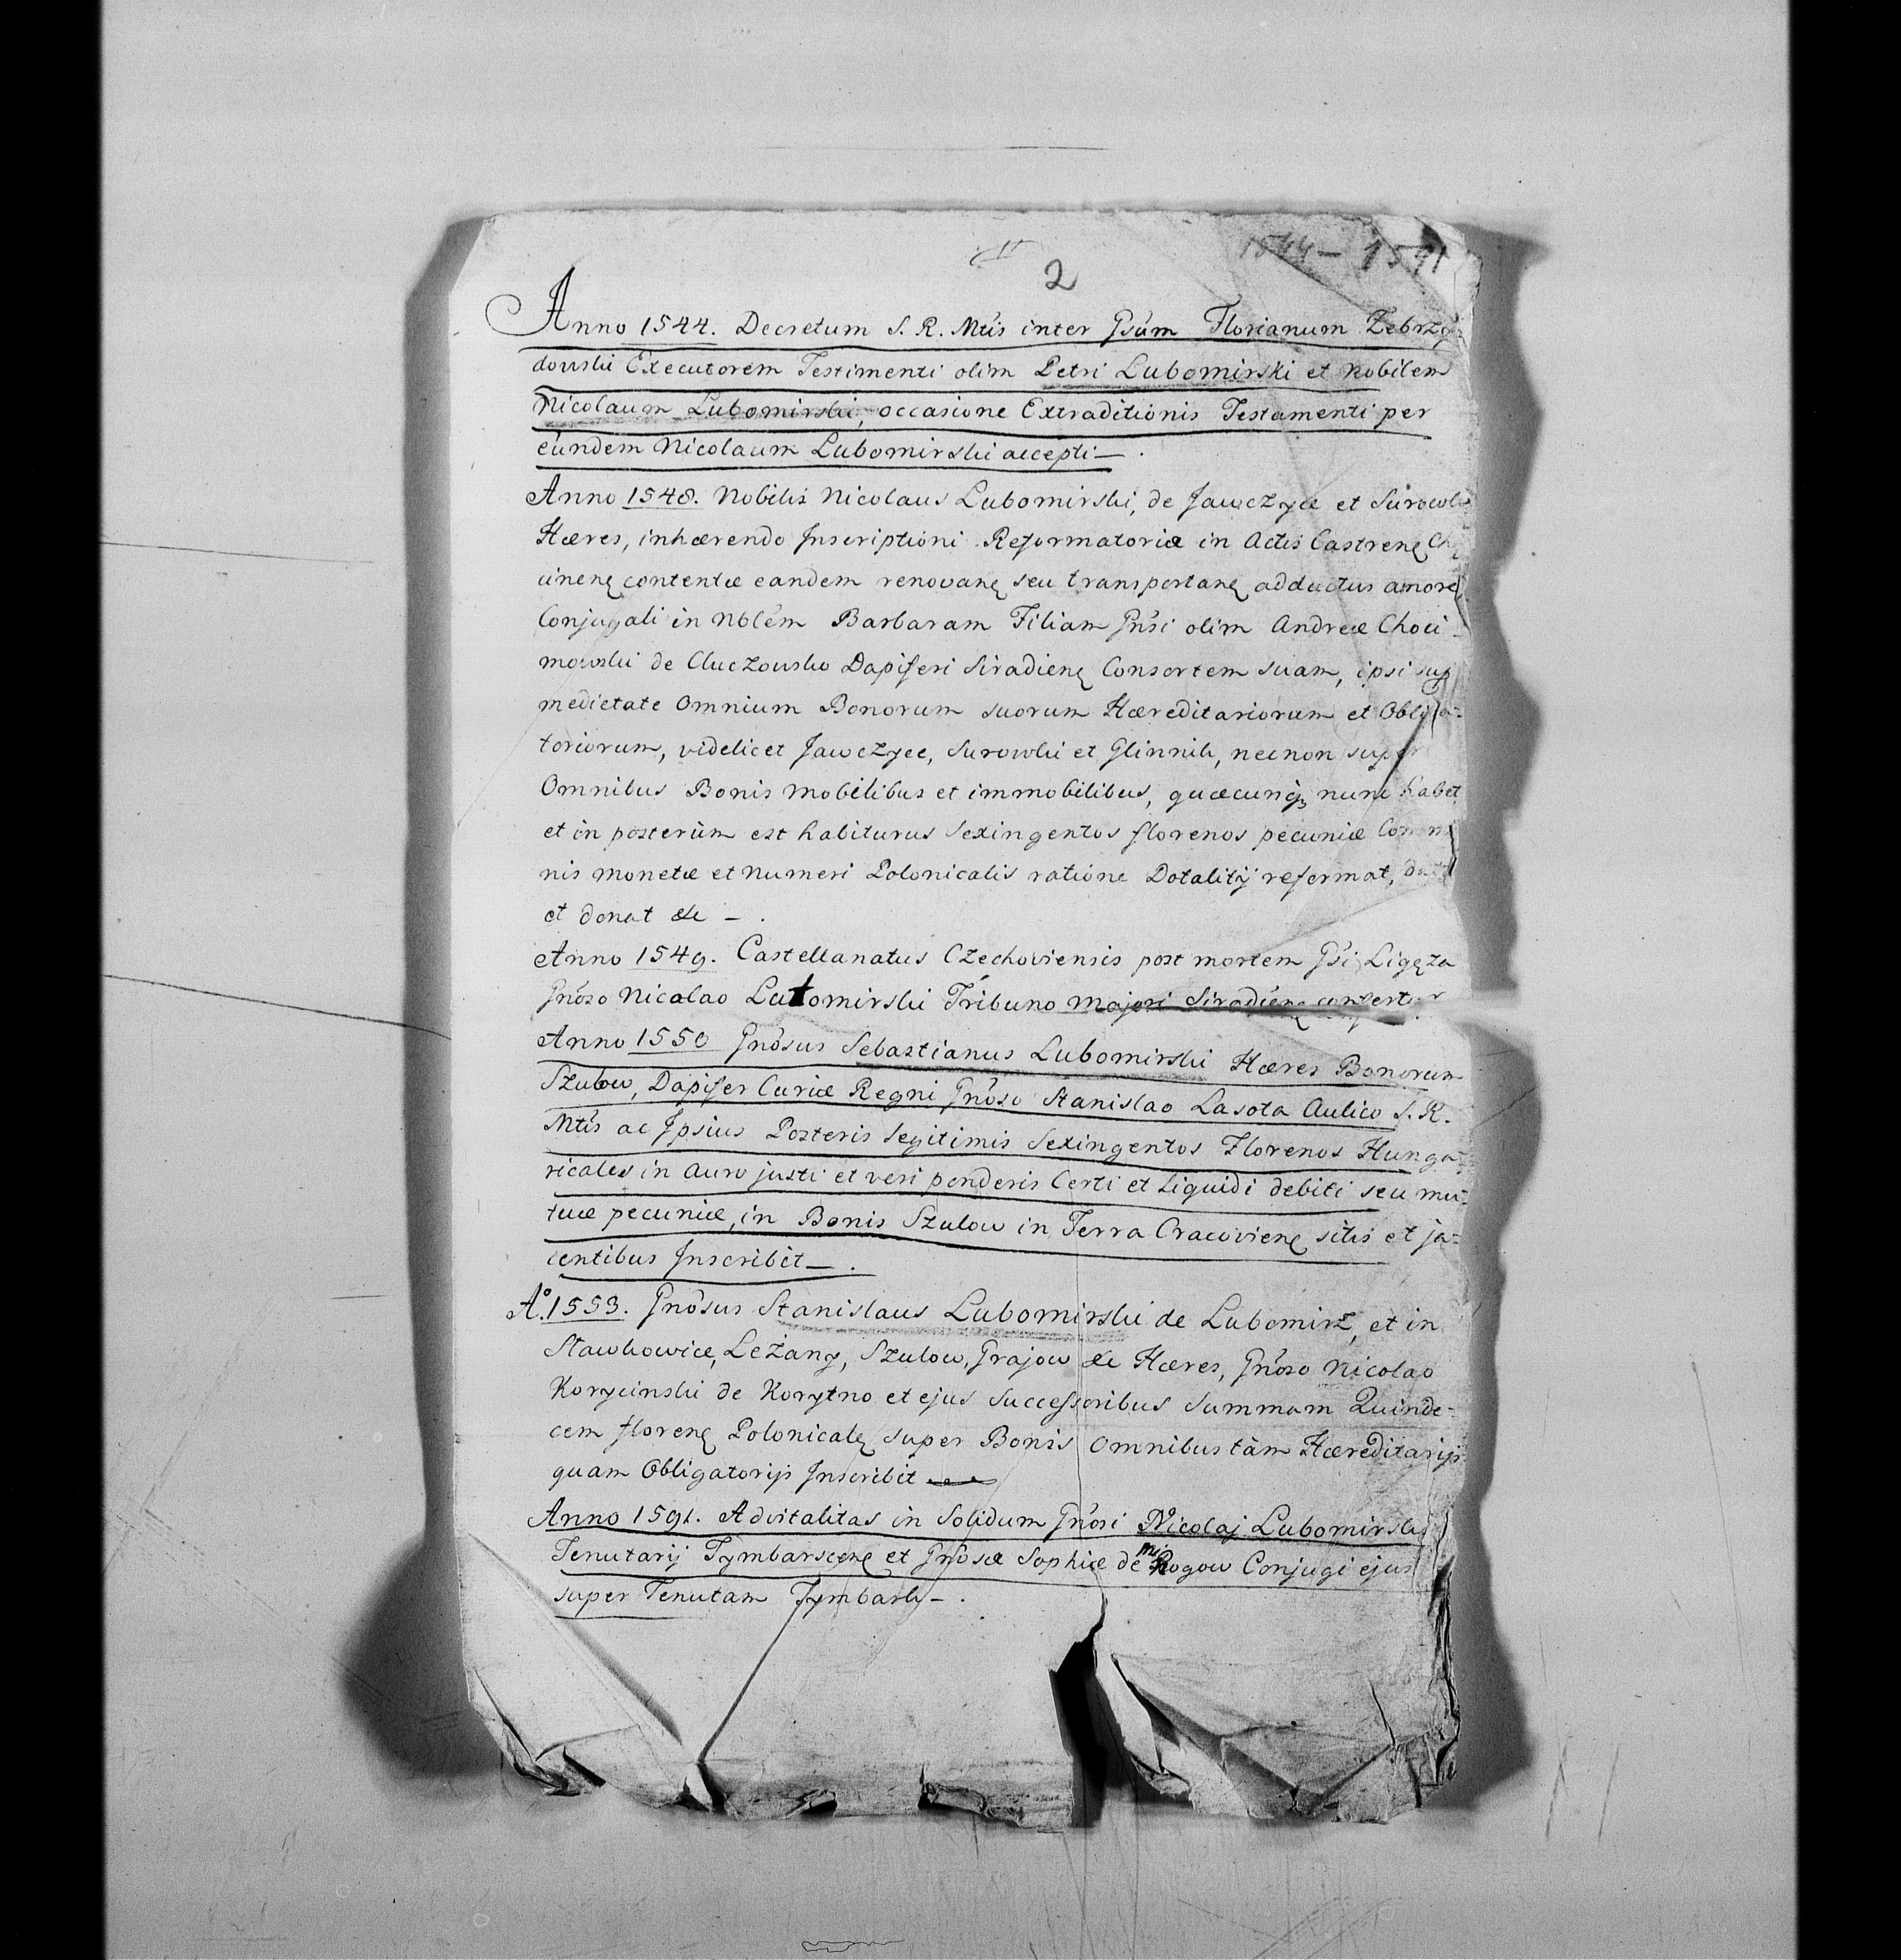 1544 – 1591
2
Anno 1544. Decretum S. R. Mtis inter Gsum Florianum Zebrzy
dowski Executorem Testimenti olim Petri Lubomirski et Nobilem
Nicolaum Lubomirski, occasione Extraditionis Testamenti per
eundem Nicolaum Lubomirski accepti – .
Anno 1548. Nobilis Nicolaus Lubomirski, de Jawczyce et Surowki
Hæres, inhærendo Inscriptioni Reformatoriæ in Actis Castrenę Chę
cinenę contentæ eandem renovanę seu transportanę adductus amore
Conjugali in Nblem Barbaram Filiam Gnsi olim Andreæ Choci-
mowski de Cluczowsko Dapiferi Siradienę Consortem suam, ipsi sup
medietate Omnium Bonorum suorum Hæreditariorum et Obliga-
toriorum, videlicet Jawczyce, Surowki et Glinnik, necnon super
Omnibus Bonis mobilibus et immobilibus, quæcunqȝ nunc habet
et in posterùm est habiturus Sexingentos florenos pecuniæ Commu
nis monetæ et Numeri Polonicalis ratione Dotalitij reformat, dat
et donat &c – .
Anno 1549. Castellanatus Czechoviensis post mortem Gsi Ligęza
Gnoso Nicolao Lutomirski Tribuno Majori Siradienę confertur
Anno 1550 Gnosus Sebastianus Lubomirski Hæres Bonorum
Szulow, Dapifer Curiæ Regni Gnoso Stanislao Lasota Aulico S. R.
Mtis ac Ipsius Posteris legitimis Sexingentos Florenos Hunga-
ricales in Auro justi et veri ponderis Certi et Liquidi debiti seu mu-
tuæ pecuniæ, in Bonis Szulow in Terra Cracovienę sitis et ja-
centibus Inscribit – .
Aº. 1553. Gnosus Stanislaus Lubomirski de Lubomirz, et in
Stawkowice, Leżany, Szulow, Grajow &c Hæres, Gnoso Nicolao
Korycinski de Korytno et ejus Successoribus Summam Quinde-
cem florenę Polonicalę super Bonis Omnibus tàm Hæreditarijs
quam Obligatorijs Inscribit
Anno 1591. Advitalitas in Solidum Gnosi Nicolaj Lubomirski
Tenutarij Tymbarscenę et Gnosæ Sophiæ de Rogow Conjugi ejus
super Tenutam Tymbark – .